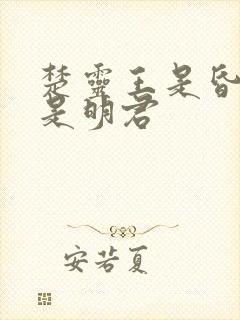 楚靈王是昏
是明君
安若夏